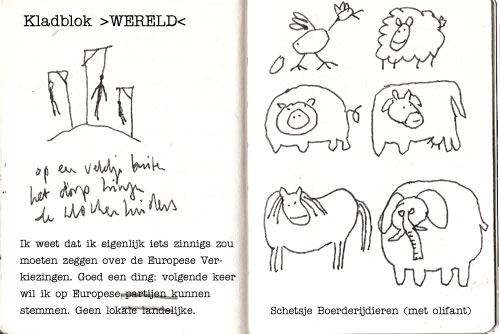 Kladblok >WERELD<
op een veldje buiten
het dorp hingen
de klokkenluiders
Ik weet dat ik eigenlijk iets zinnigs zou
moeten zeggen over de Europese Ver-
kiezingen. Goed een ding: volgende keer
wil ik op Europese partijen kunnen
stemmen. Geen lokale landelijke.
Schetsje Boerderijdieren (met olifant)